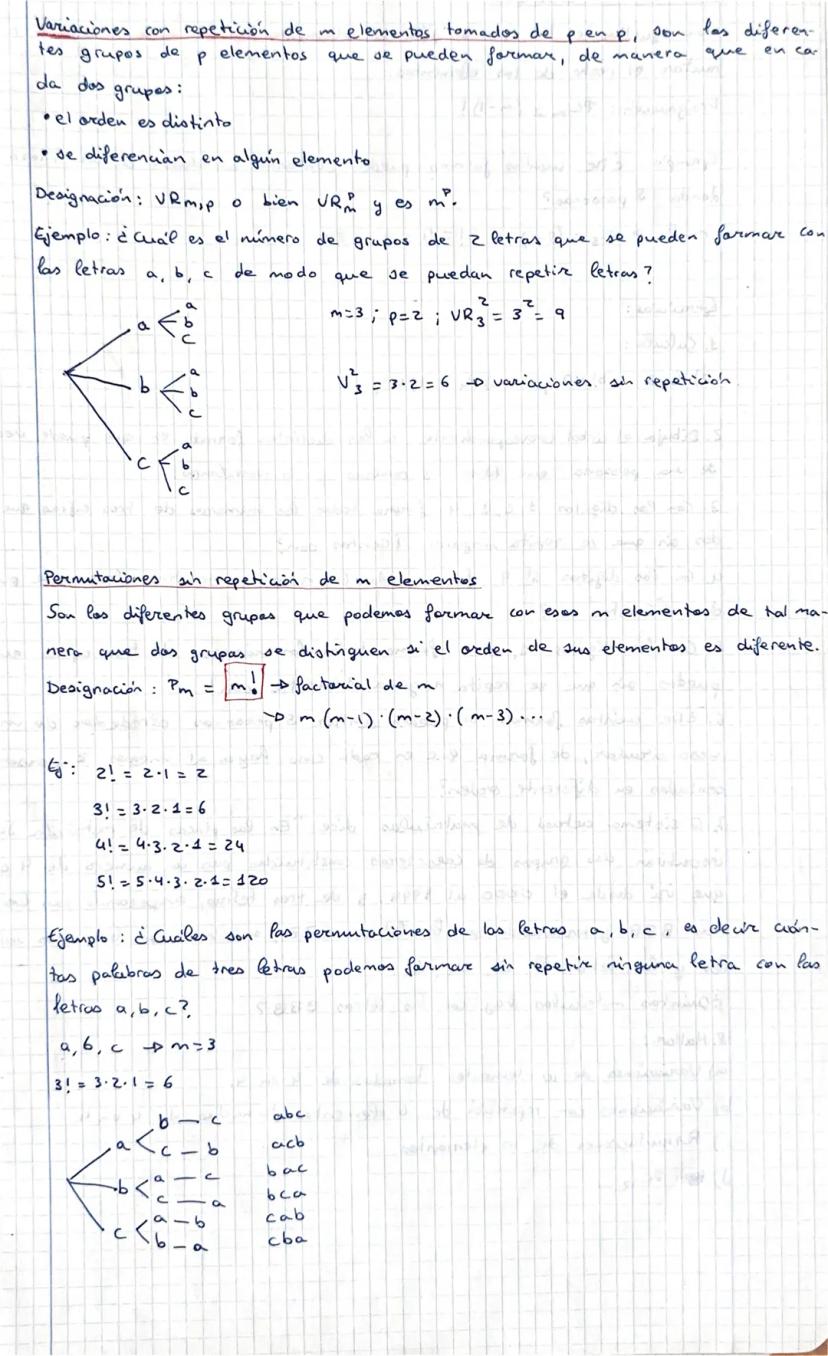 Variaciones con repetición de m elementos tomados de p en p, son los diferen-
tes grupos de p elementos que se pueden formar, de manera que en ca-
da dos grupos:
• el orden es distinto
• se diferencian en algún elemento
Designación: VRm,p o bien VRₘᵖ y es mᵖ.
Ejemplo: ¿Cuál es el número de grupos de 2 letras que se pueden formar con
las letras a, b, c de modo que se puedan repetir letras?
a a b c
m=3 ; p=2 ; VR₃² = 3² = 9
b a b c
V₃² = 3·2 = 6 → variaciones sin repetición
c a b c
Permutaciones sin repetición de m elementos
Son los diferentes grupos que podemos formar con esos m elementos de tal ma-
nera que dos grupos se distinguen si el orden de sus elementos es diferente.
Designación: Pm = m! → factorial de m
→ m (m-1)·(m-2)·(m-3)...
Ej: 2! = 2·1 = 2
3! = 3·2·1 = 6
4! = 4·3·2·1 = 24
5! = 5·4·3·2·1 = 120
Ejemplo: ¿Cuáles son las permutaciones de las letras a, b, c, es decir cuán-
tas palabras de tres letras podemos formar sin repetir ninguna letra con las
letras a, b, c?
a, b, c → m=3
3! = 3·2·1 = 6
b — c abc
a c — b acb
a — c bac
b c — a bca
c a — b cab
b — a cba